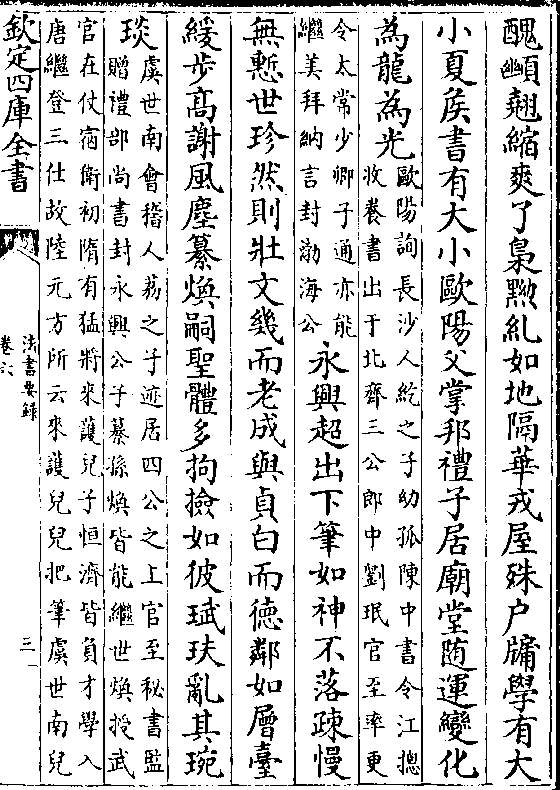 醜顛翹縮爽了梟黝糺如地隔華戎屋殊户牗學有大
小夏侯書有大小歐陽父掌邦禮子居廟堂随運變化
為龍為光
歐陽詢長沙人紇之子幼孤陳中書令江揔
收養書出于北齊三公郎中劉珉官至率更
令太常少卿子通亦能
繼美拜納言封渤海公
永興超出下筆如神不落疎慢
無慙世珍然則壯文幾而老成與貞白而德鄰如層臺
緩步髙謝風塵纂煥嗣聖體多拘撿如彼珷玞亂其琬
琰
虞世南會稽人荔之子迹居四公之上官至秘書監
贈禮部尚書封永興公子纂孫煥皆能繼世煥授武
官在仗宿衛初隋有猛將來護兒子恒濟皆負才學入
唐繼登三仕故陸元方所云來護兒兒把筆虞世南兒
欽定四庫全書
法書要録
卷六
三